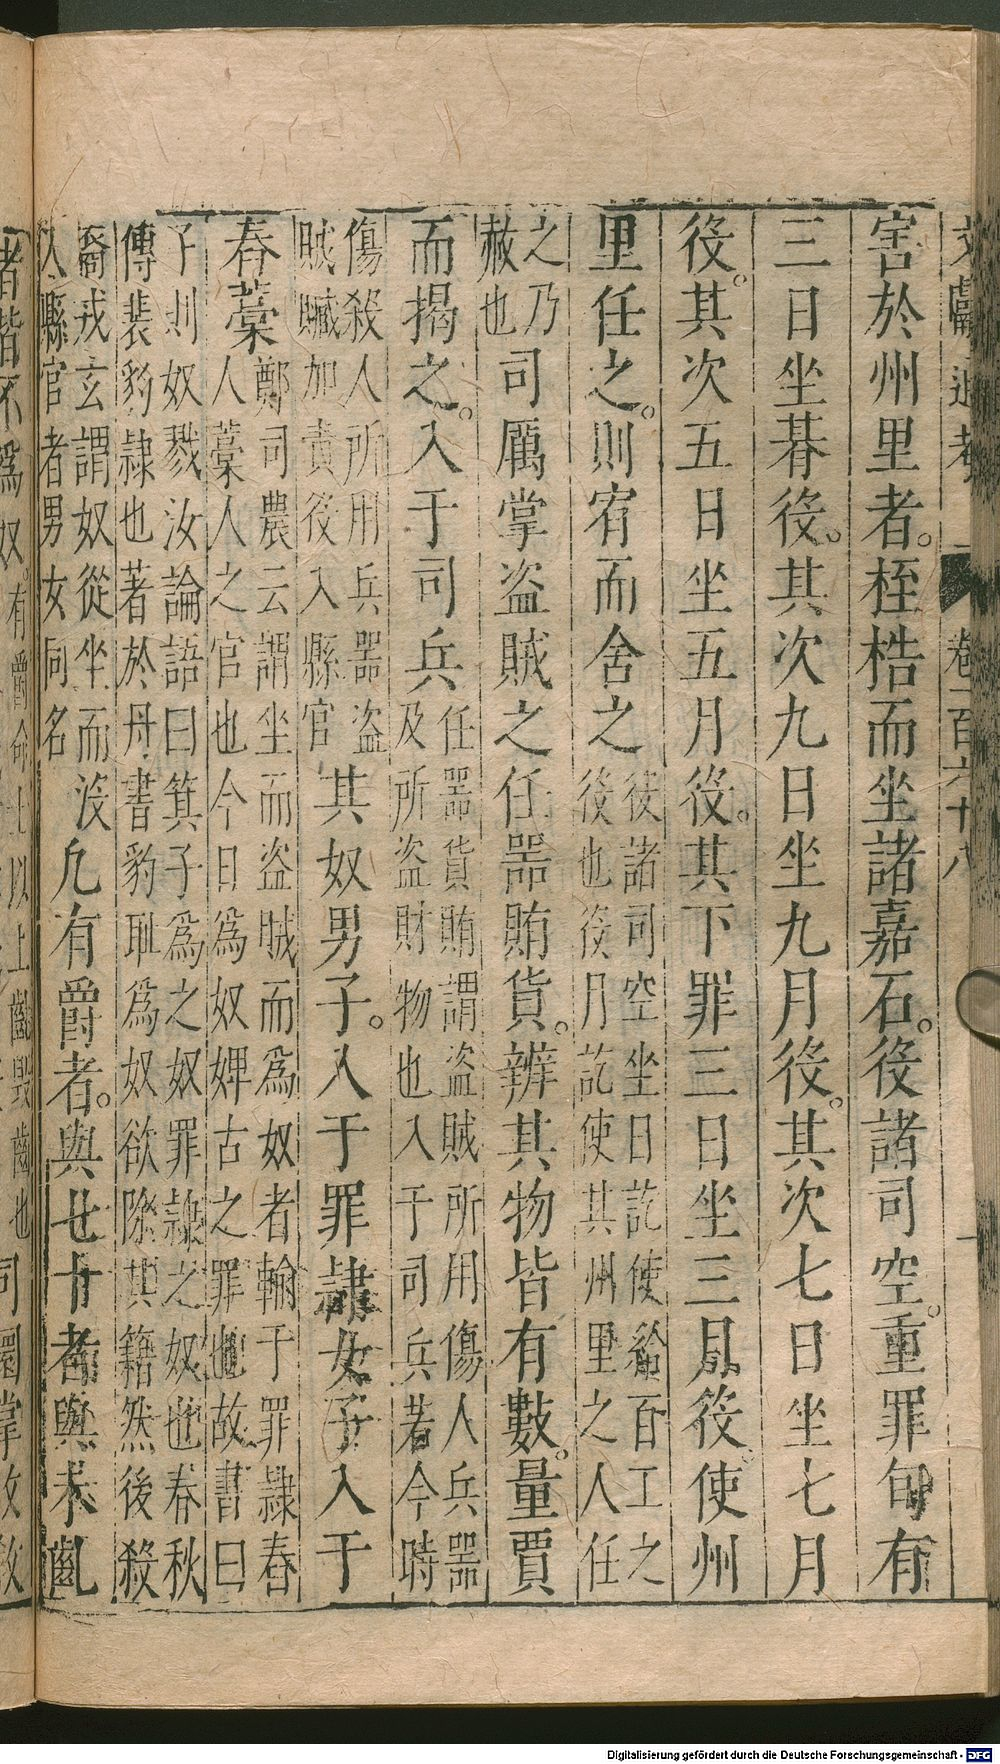 文獻通考 卷一百六十八 一
害於州里者。桎梏而坐諸嘉石。役諸司空。重罪旬有
三日坐朞役。其次九日坐九月役。其次七日坐七月
役。其次五日坐五月役。其下罪三日坐三月役。使州
里任之。則宥而舍之
役諸司空坐日訖使給百工之
役也役月訖使其州里之人任
之乃
赦也
司厲掌盜賊之任器賄貨。辨其物皆有數。量賈
而揭之。入于司兵
任器貨賄謂盜賊所用傷人兵器
及所盜財物也入于司兵若今時
傷殺人所用兵器盜
賊贓加責役入縣官
其奴男子。入于罪隸女子入于
舂藁
鄭司農云謂坐而盜賊而爲奴者輸于罪隸舂
人藁人之官也今日爲奴婢古之罪也故書曰
子則奴戮汝論語曰箕子爲之奴罪隸之奴也春秋
傳裴豹隸也著於丹書豹耻爲奴欲除其籍然後殺
裔戎玄謂奴從坐而沒
入縣官者男女同名
凡有爵者。與七十者與未齔
者皆不爲奴。
有爵命士以上齔毀齒也
司圜掌收教
Digitalisierung gefördert durch die Deutsche Forschungsgemeinschaft - DFG